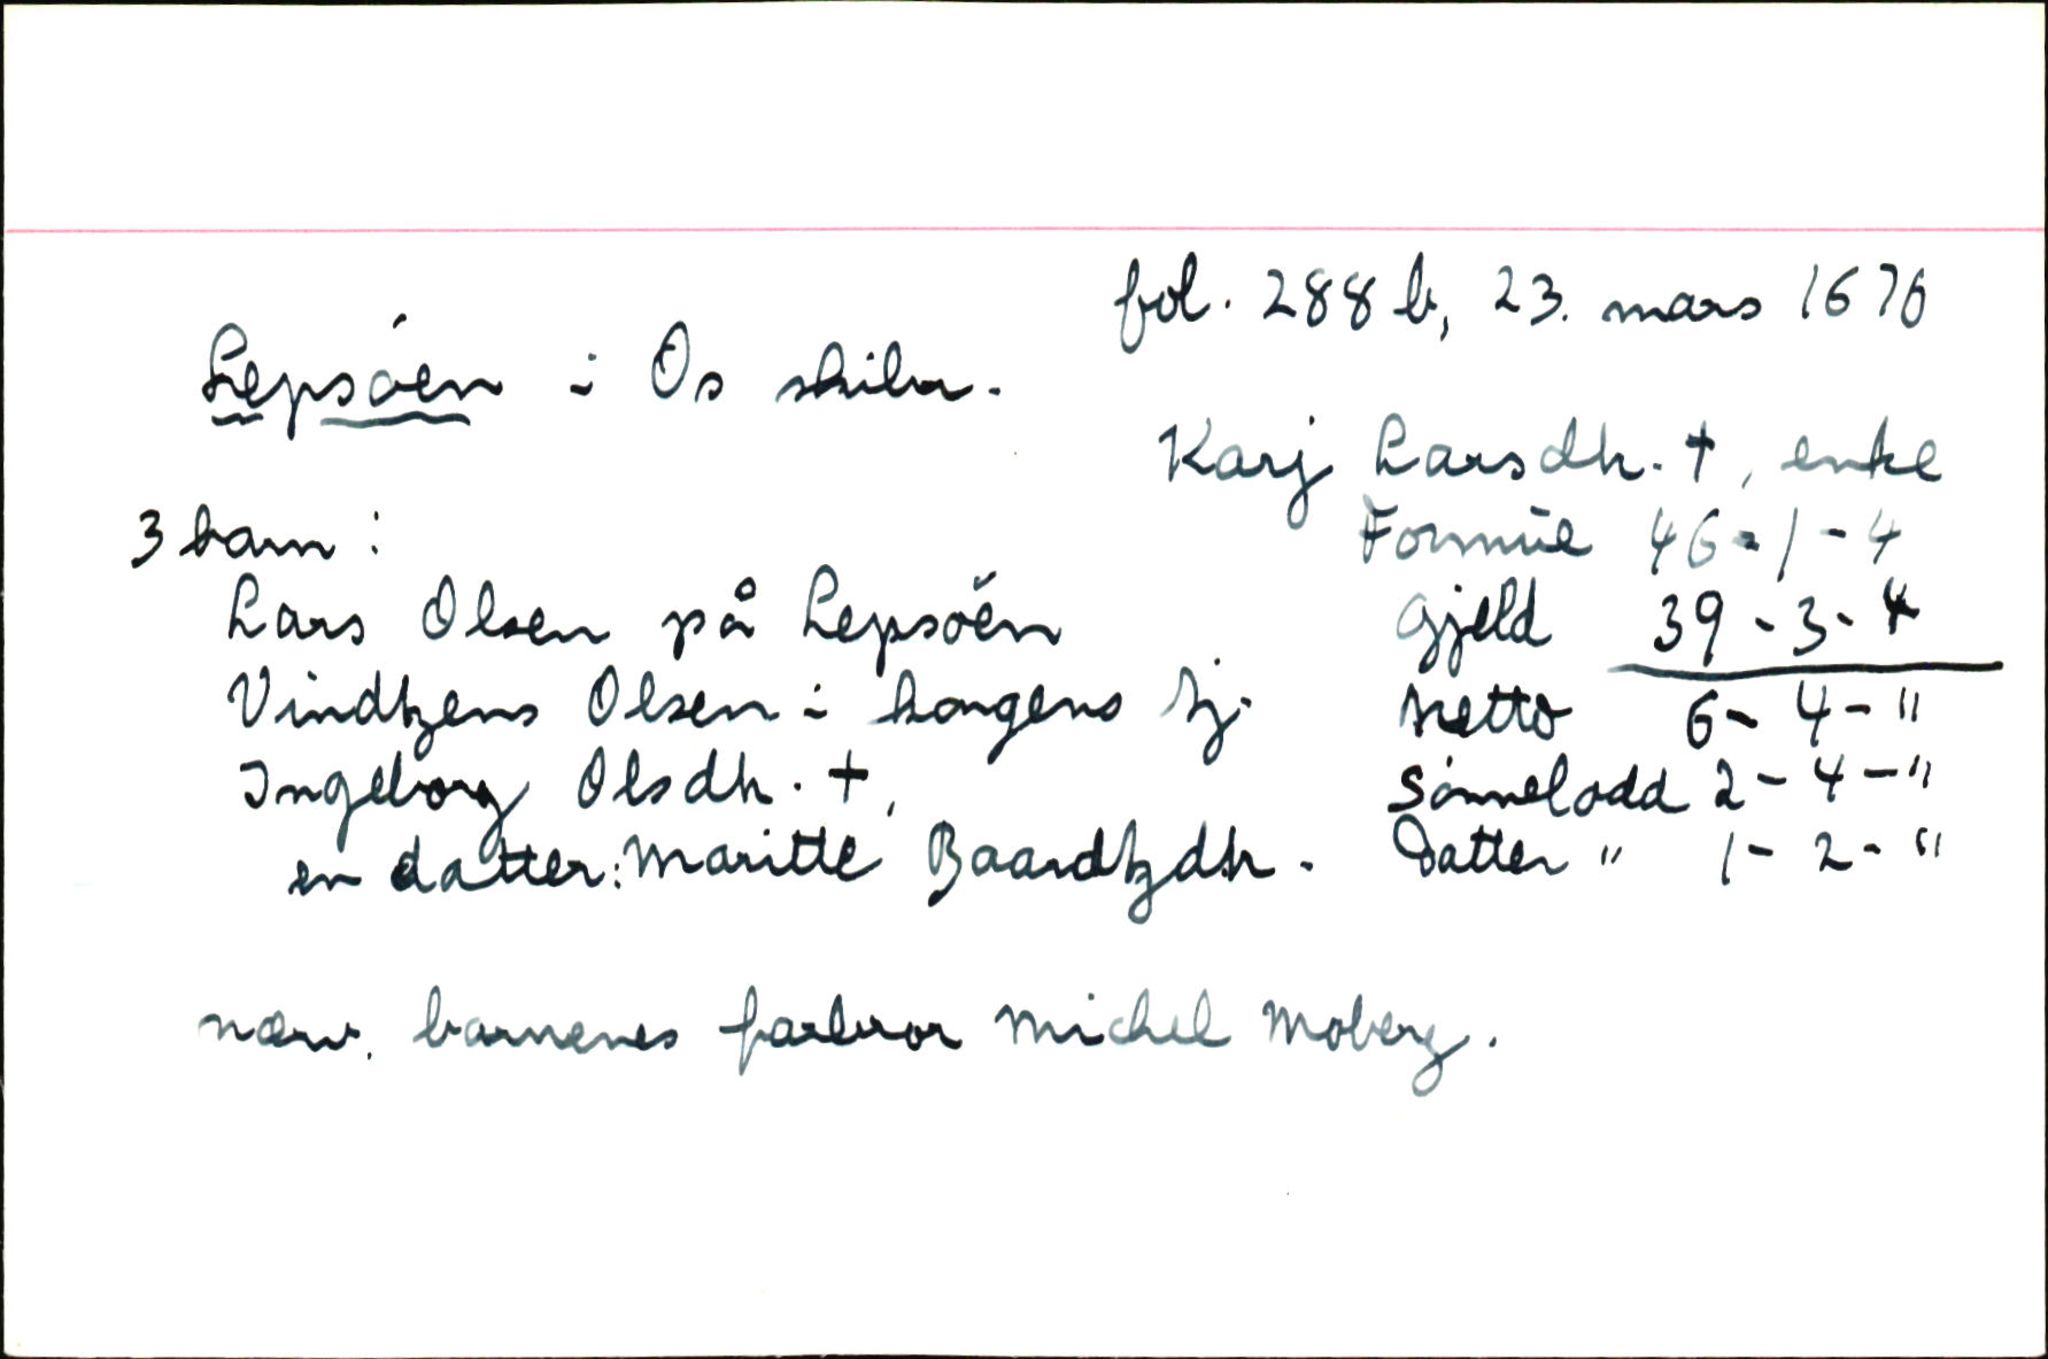 fol. 288 b, 23. mars 1676
Lepsöen i Os skibr.
Karj Larsdtr. †, enke
3 barn:
Formue 46-1-4
Lars Olsen på Lepsöen
Gjeld 39-3-4
Vindtzens Olsen i kongens tj.
Netto 6-4-"
Ingeborg Olsdtr. †,
Sönnelodd 2-4-"
en datter: Maritte Baardtzdtr.
Datter " 1-2-"
nærv. barnenes farbror Michel Moberg.